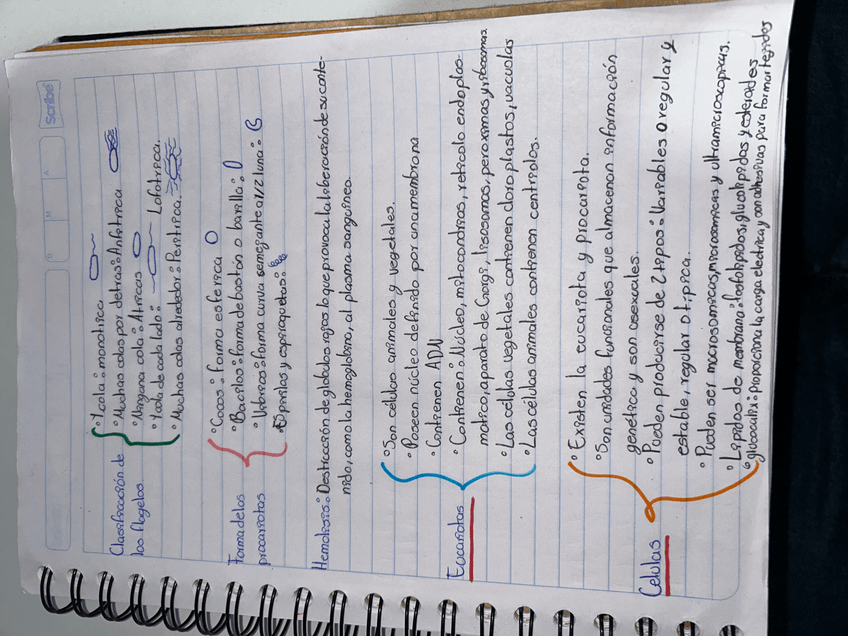 Scribe
D M A
Clasificación de
los flagelos
° 1 cola: monotrica
° Muchas colas por detras: Anfitrica
° Ninguna cola: Atricas
° 1 cola de cada lado: Lofotrica.
° Muchas colas alrededor: Peritrica.
Forma de los
procariotas
° Cocos: forma esferica
° Bacilos: forma de bastón o barilla:
° Vibrios: forma curva semejante a 1/2 luna:
° Espirilos y espiroquetas:
Hemolisis: Destrucción de glóbulos rojos lo que provoca la liberación de su conte-
nido, como la hemoglobina, al plasma sanguíneo.
Eucariotas
° Son células animales y vegetales.
° Poseen núcleo definido por una membrana
° Contienen ADN
° Contienen: Núcleo, mitocondrias, retículo endoplas-
matico, aparato de Gorgi, lisosomas, peroximas y ribosomas
° Las células vegetales contienen cloroplastos, vacuolas
° Las células animales contienen centriolos.
Células
° Existen la eucariota y procariota.
° Son unidades funcionales que almacenan información
genético y son asexuales.
° Pueden producirse de 2 tipos: Variables o regular y
estable, regular o tipica.
° Pueden ser macrosomicas, microsomicas y ultramicroscopicas.
° Lípidos de membrana: fosfolipidos, glucolipidos y esteroides
° glucocalix: Proporciona la carga electrica y son adhesivas para formar tejidos